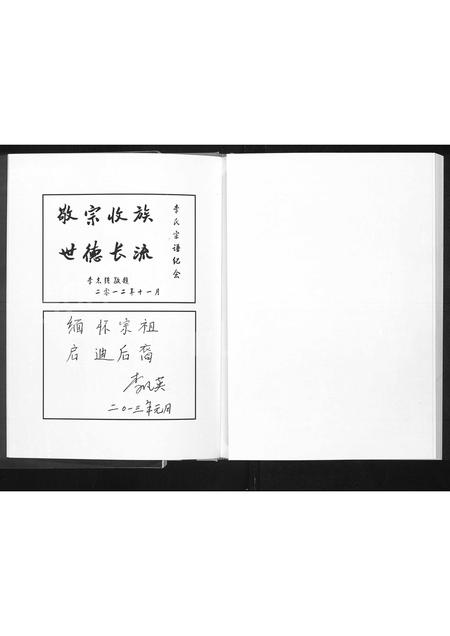 李氏宗谱纪念
敬宗收族
世德长流
二零一二年十一月
缅怀宗祖
启迪后裔
二〇一三年元月